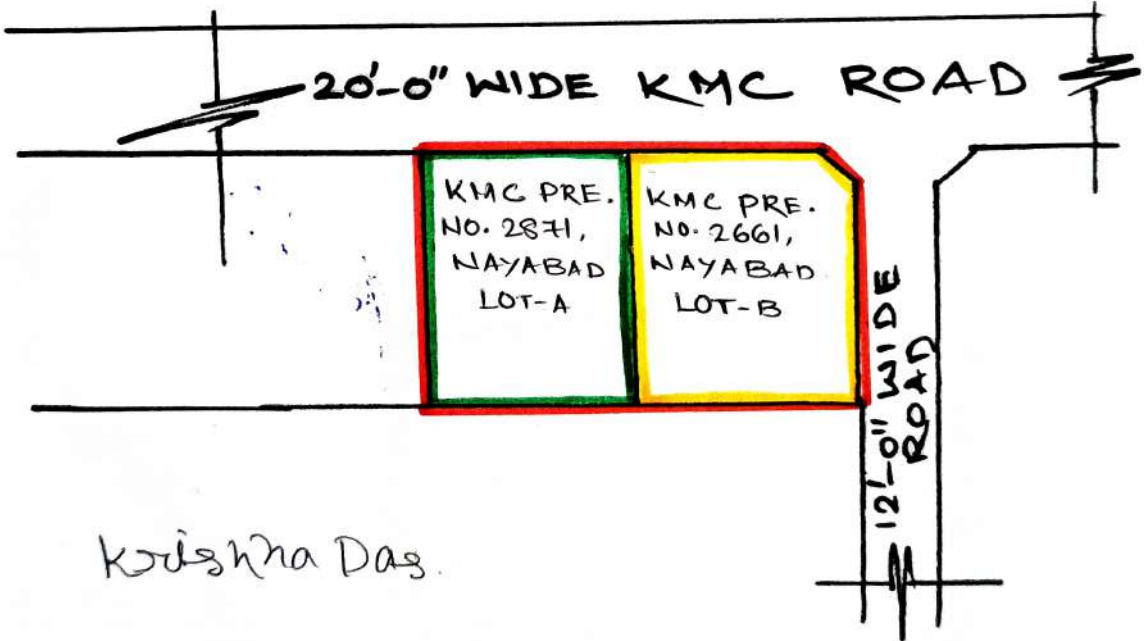 20'-0" WIDE KMC ROAD
KMC PRE.
NO. 2871,
NAYABAD
LOT-A
KMC PRE.
NO. 2661,
NAYABAD
LOT-B
12'-0" WIDE
ROAD
Krishna Das.